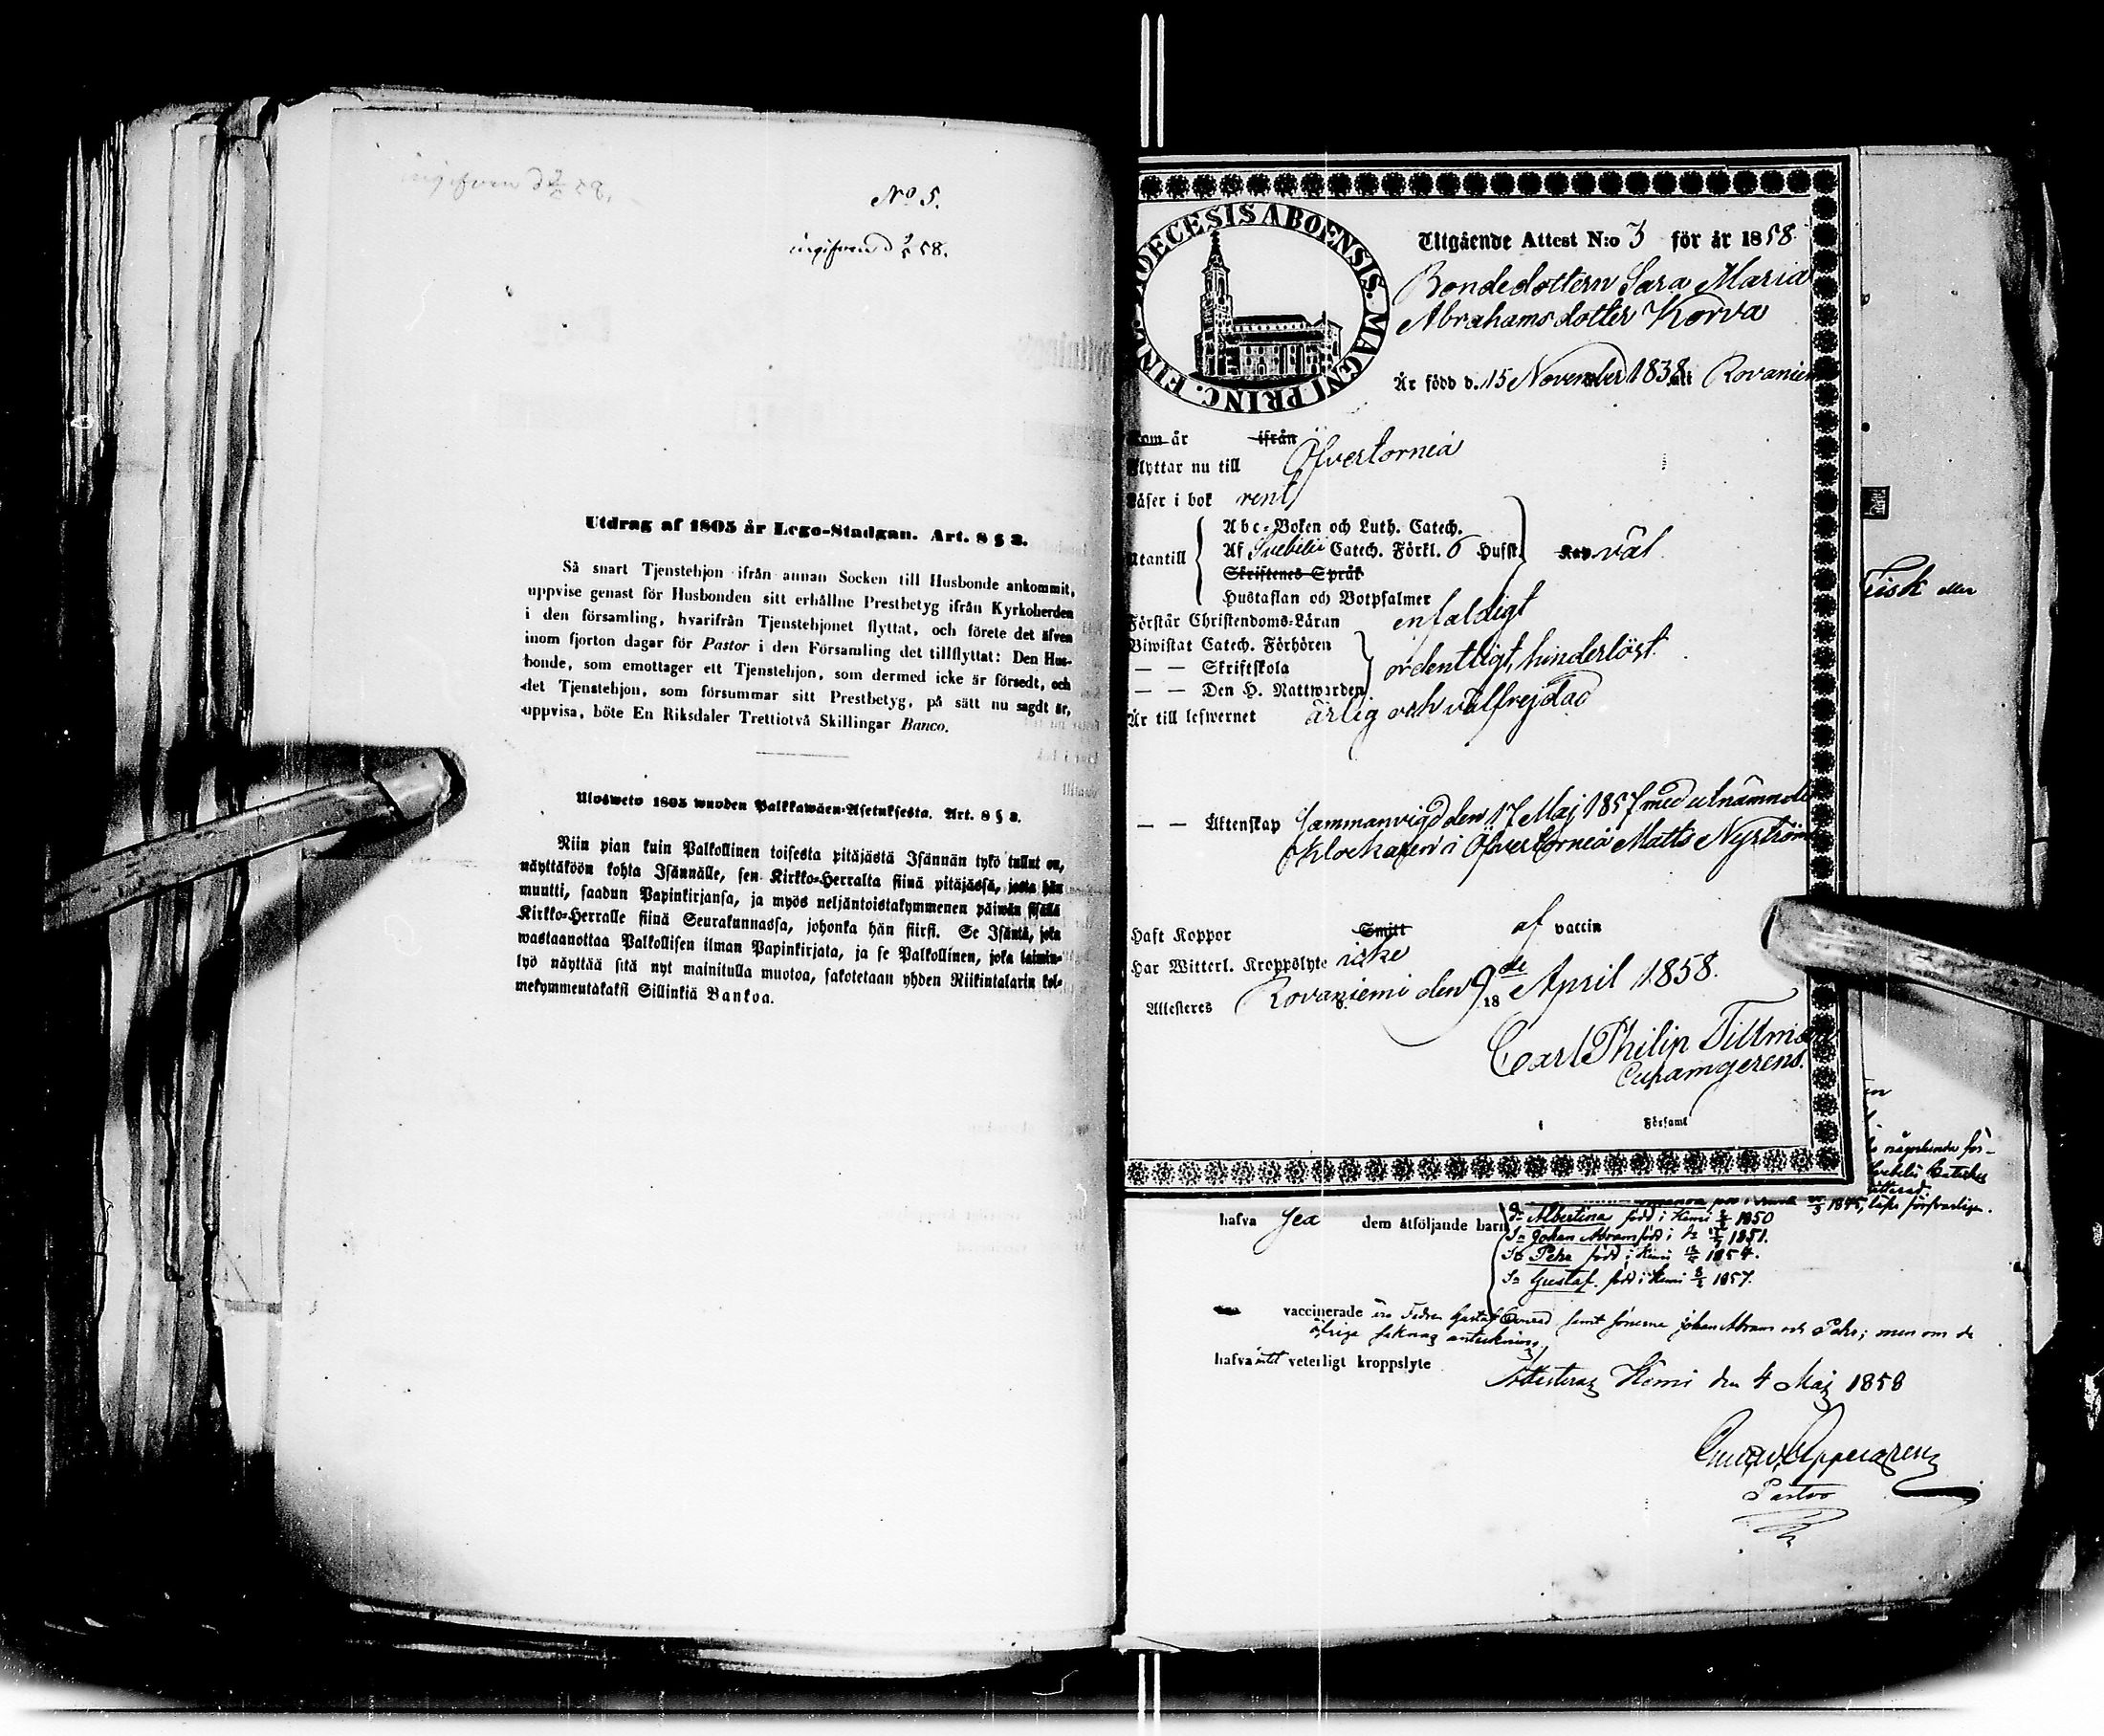 ingifven d 3/5 58.
No 5.
ingifven d 3/5 58.
Utdrag af 1805 år Lego-Stadgan. Art. 8 § 3.
Så snart Tjenstehjon ifrån annan Socken till Husbonde ankommit,
uppvise genast för Husbonden sitt erhållne Prestbetyg ifrån Kyrkoherden
i den församling, hvarifrån Tjenstehjonet flyttat, och förete det äfven
inom fjorton dagar för Pastor i den Församling det tillflyttat: Den Hus-
bonde, som emottager ett Tjenstehjon, som dermed icke är försedt, och
det Tjenstehjon, som försummar sitt Prestbetyg, på sätt nu sagdt är,
uppvisa, böte En Riksdaler Trettiotvå Skillingar Banco.
Ulosweto 1805 wuoden Palkkawäen-Asetuksesta. Art. 8 § 3.
Niin pian kuin Palkollinen toisesta pitäjästä Isännän tykö tullut on,
näyttäköön kohta Isännälle, sen Kirkko-Herralta siinä pitäjässä, josta hän
muutti, saadun Papinkirjansa, ja myös neljäntoistakymmenen päiwän sisällä
Kirkko-Herralle siinä Seurakunnassa, johonka hän siirsi. Se Isäntä, joka
wastaanottaa Palkollisen ilman Papinkirjata, ja se Palkollinen, joka laimin-
lyö näyttää sitä nyt mainitulla muotoa, sakotetaan yhden Riikintalarin kol-
mekymmentäkaksi Sillinkiä Bankoa.
DIOECESIS ABOENSIS. MAGNI PRINC. FINL.
Utgående Attest N:o 3 för år 1858.
Bondedottern Sara Maria
Abrahamsdotter Korva
Är född d. 15 November 1838 uti Rovaniem
Kom år ifrån
Flyttar nu till Öfvertorneå
Läser i bok rent
Abc-Boken och Luth. Catech.
Utantill Af Svebilii Catech. Förkl. 6 Hufst. Kap väl
Skriftenes Språk
Hustaflan och Botpsalmer
Förstår Christendoms-Läran enfaldigt
Biwistat Catech. Förhören
— — Skriftskola ordentligt, hinderlöst.
— — Den H. Nattwarden
Är till lefwernet ärlig och välfrejdad
— — Äktenskap Sammanvigd den 17 Maj 1857 med utnämnde
Klockaren i Öfvertorneå Matts Nyström
Haft Koppor Smitt af vaccin
Har Witterl. Kroppslyte icke
Attesteres Rovaniemi den 9de April 1858.
d. 18
Carl Philip Tillman
Curam gerens.
Församl
Fisk eller
någorlunda för-
Svebilii Cateches
1845, läser försvarligen.
hafva Sex dem åtföljande barn
Dr Albertina född i Kemi 1850
Sn Johan Abram född i 1851.
Sn Pehr född i Kemi 1854.
Sn Gustaf. född i Kemi 1857.
vaccinerade äro Fadren Gustaf Conrad samt sönerne Johan Abram och Pehr; men om de
öfrige saknas anteckning
hafva intet veterligt kroppslyte
Attesteras Kemi den 4 Maj 1858
Pastor